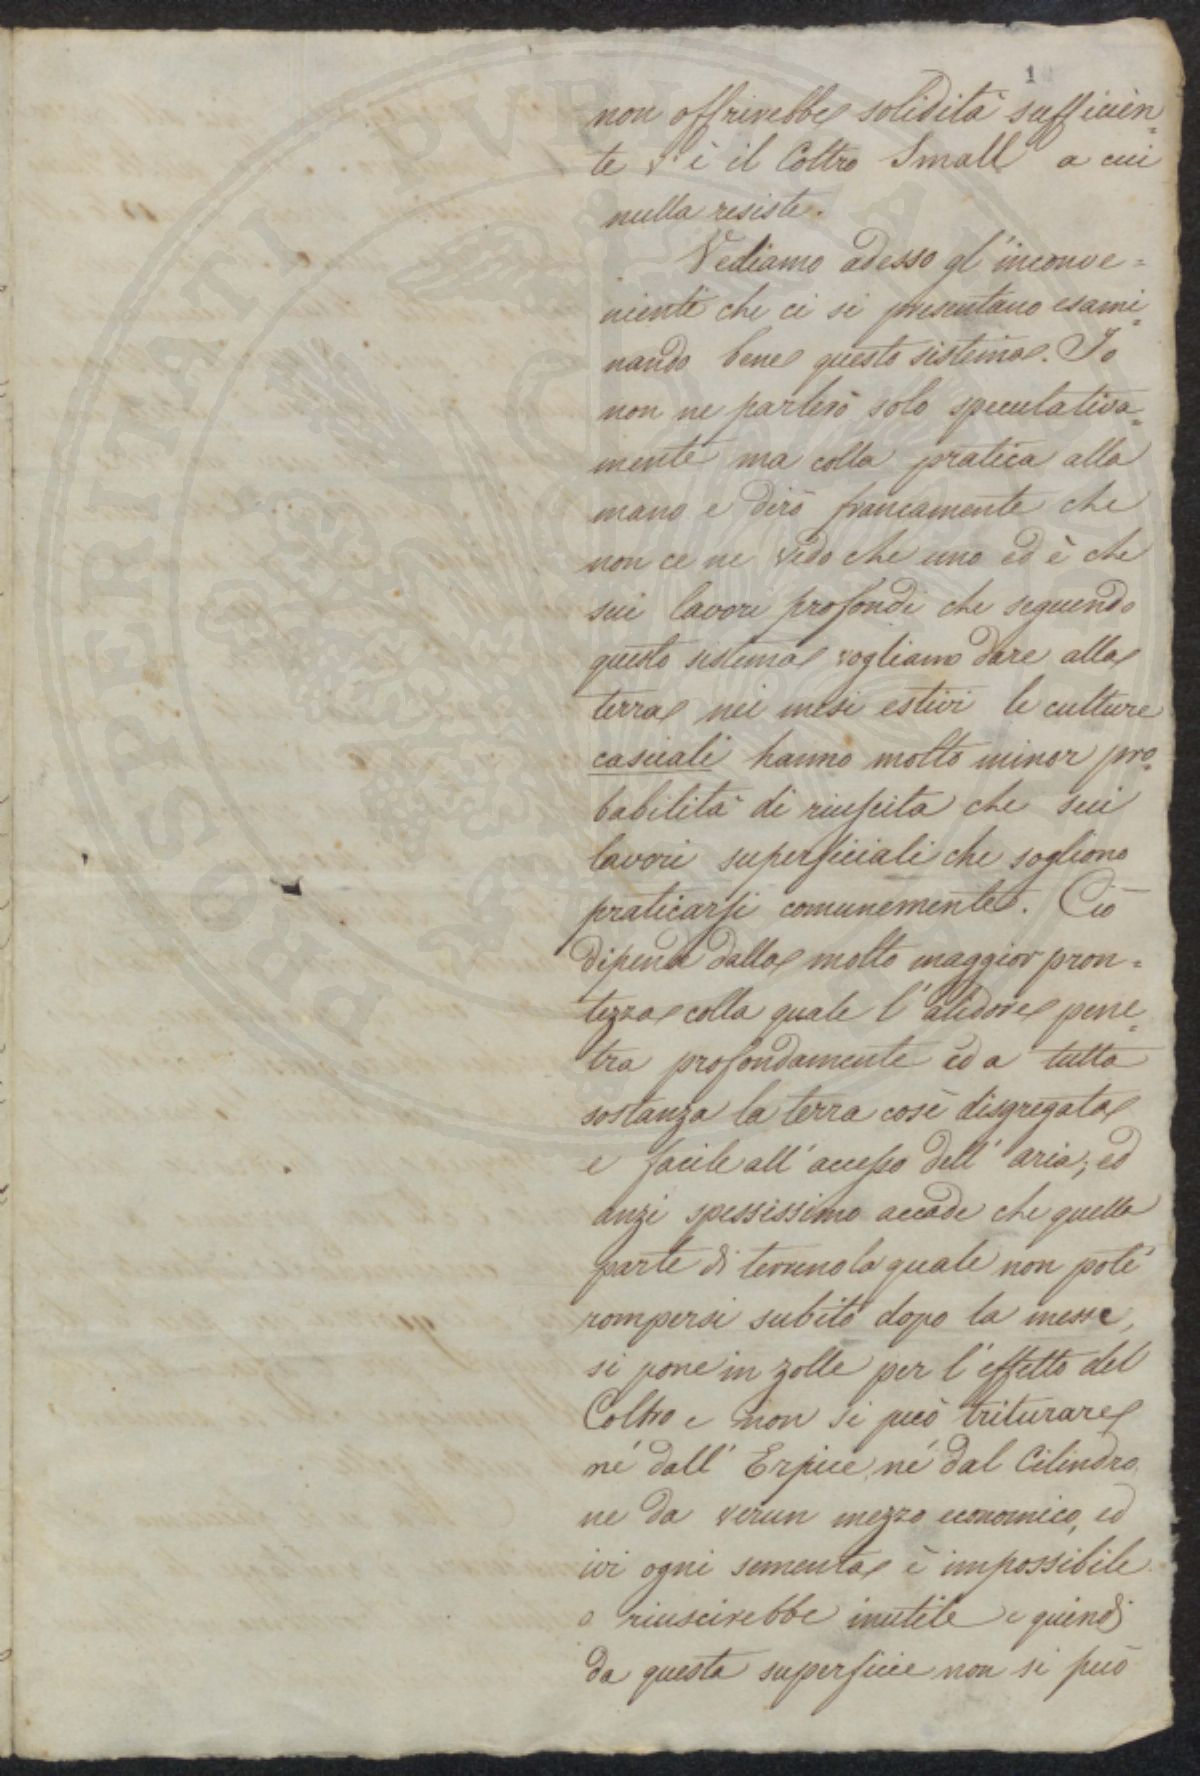 1
non offrirebbe solidità sufficien=
te v'è il Coltro Small a cui
nulla resiste.
Vediamo adesso gl'inconve=
nienti che ci si presentano esami=
nando bene questo sistema. Io
non ne parlerò solo speculativa=
mente ma colla pratica alla
mano e dirò francamente che
non ce ne vedo che uno ed è che
sui lavori profondi che seguendo
questo sistema vogliamo dare alla
terra nei mesi estivi le culture
casuali hanno molto minor pro=
babilità di riuscita che sui
lavori superficiali che sogliono
praticarsi comunemente. Ciò
dipende dalla molto maggior pron=
tezza colla quale l'alidore pene=
tra profondamente ed a tutta
sostanza la terra così disgregata
e facile all'accesso dell'aria; ed
anzi spessissimo accade che quella
parte di terreno la quale non potè
rompersi subito dopo la messe,
si pone in zolle per l'effetto del
Coltro e non si può triturare
nè dall'Erpice, nè dal Cilindro
ne da verun mezzo economico, ed
ivi ogni sementa è impossibile
o riuscirebbe inutile e quindi
da questa superficie non si può
PROSPERITATI PVBLICAE